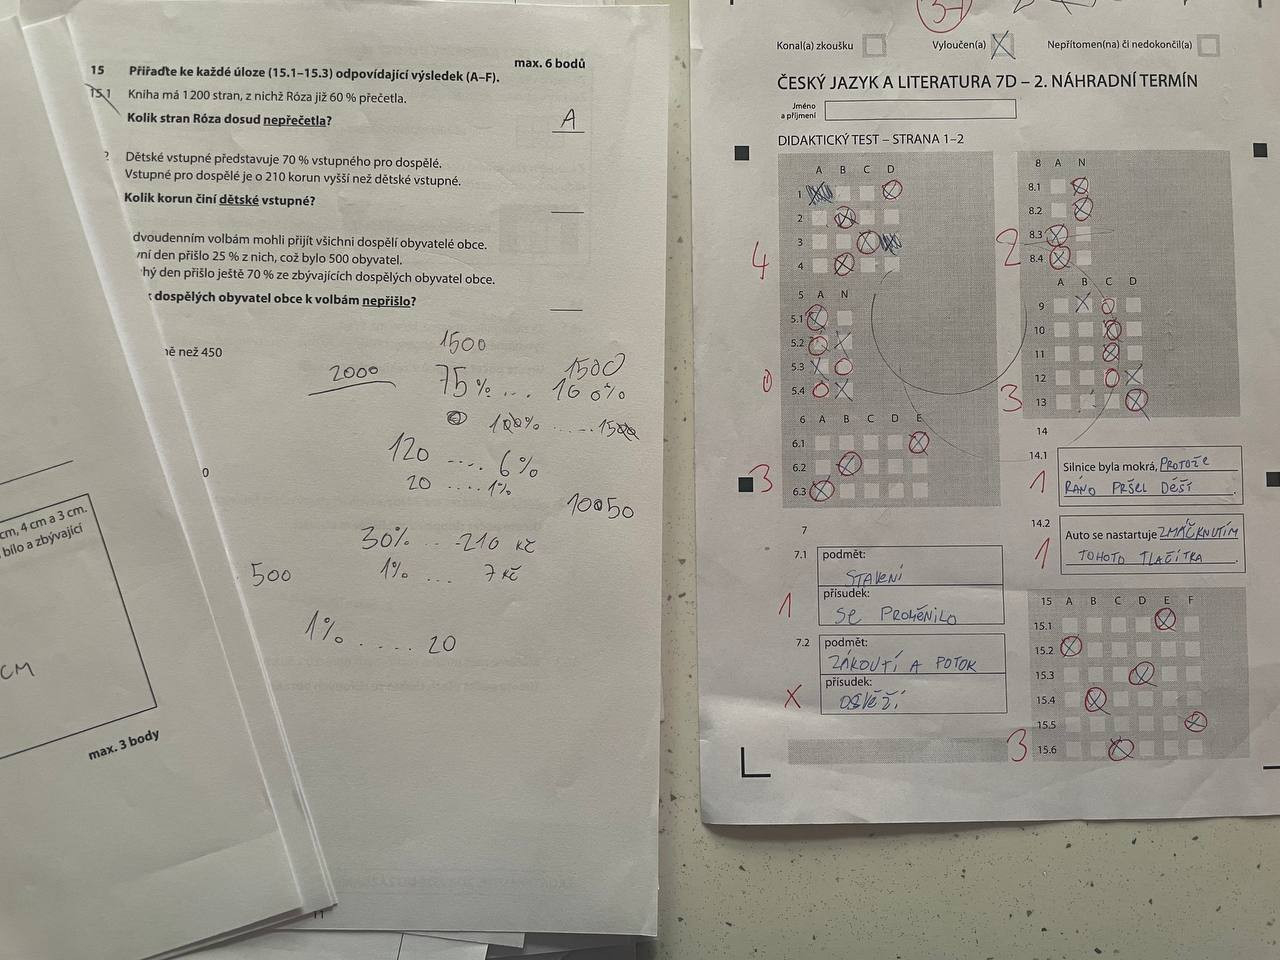 max. 6 bodů
15 Přiřaďte ke každé úloze (15.1–15.3) odpovídající výsledek (A–F).
15.1 Kniha má 1 200 stran, z nichž Róza již 60 % přečetla.
Kolik stran Róza dosud nepřečetla?
A
Dětské vstupné představuje 70 % vstupného pro dospělé.
Vstupné pro dospělé je o 210 korun vyšší než dětské vstupné.
Kolik korun činí dětské vstupné?
dvoudenním volbám mohli přijít všichni dospělí obyvatelé obce.
ní den přišlo 25 % z nich, což bylo 500 obyvatel.
hý den přišlo ještě 70 % ze zbývajících dospělých obyvatel obce.
dospělých obyvatel obce k volbám nepřišlo?
ě než 450
0
1500
2000
75 % ... 1500
100%
100% ..... 1500
120 .... 6 %
20 .... 1%
10050
30% .. 210 Kč
1% ... 7 Kč
500
1% ..... 20
cm, 4 cm a 3 cm.
bílo a zbývající
CM
max. 3 body
11
Konal(a) zkoušku
Vyloučen(a)
Nepřítomen(na) či nedokončil(a)
ČESKÝ JAZYK A LITERATURA 7D – 2. NÁHRADNÍ TERMÍN
Jméno
a příjmení
DIDAKTICKÝ TEST – STRANA 1–2
A B C D
1
2
3
4
4
5 A N
5.1
5.2
5.3
5.4
0
6 A B C D E
6.1
6.2
6.3
3
7
7.1 podmět:
STAVENÍ
přísudek:
SE PROMĚNILO
1
7.2 podmět:
ZÁKOUTÍ A POTOK
přísudek:
OSVĚŽÍ
X
8 A N
8.1
8.2
8.3
8.4
2
A B C D
9
10
11
12
13
3
14
14.1 Silnice byla mokrá, PROTOŽE
RÁNO PRŠEL DÉŠŤ.
1
14.2 Auto se nastartuje ZMÁČKNUTÍM
TOHOTO TLAČÍTKA.
1
15 A B C D E F
15.1
15.2
15.3
15.4
15.5
15.6
3